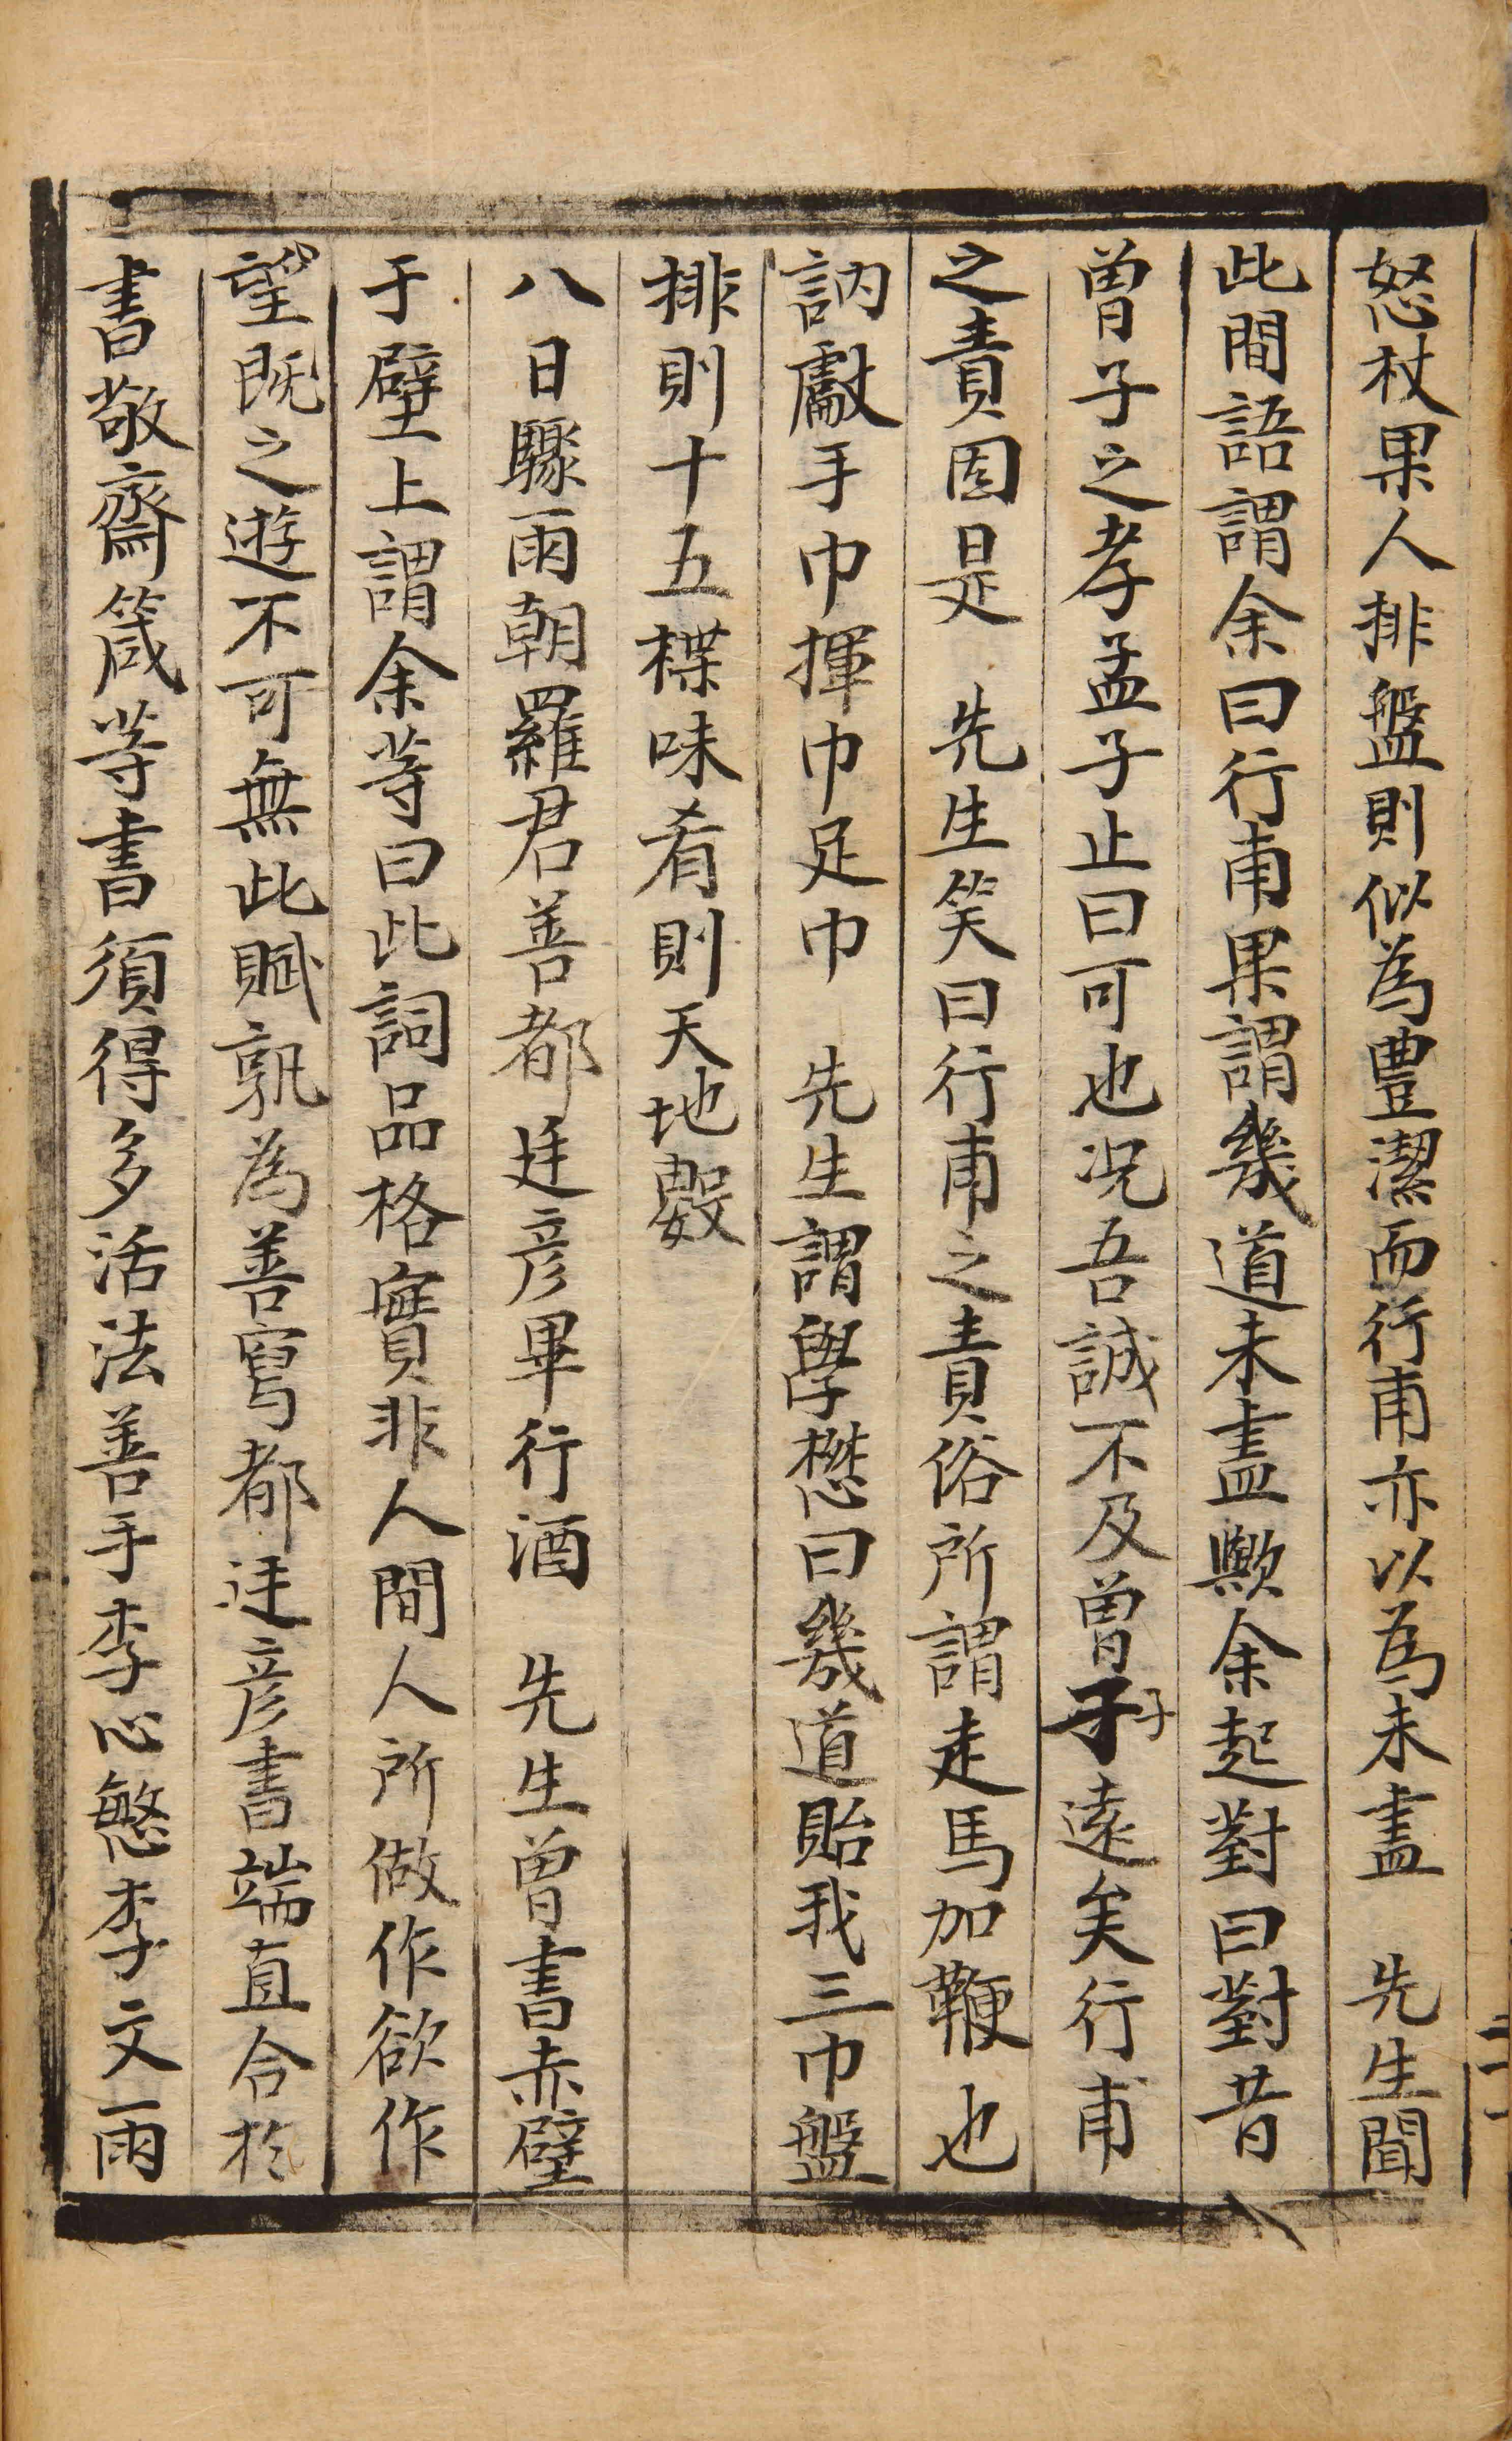 怒杖果人排盤則似為豊潔而行甫亦以為未盡 先生聞
此間語謂余曰行甫果謂幾道未盡歟余起對曰對昔
曽子之孝孟子止曰可也况吾誠不及曽子子遠矣行甫
之責固是 先生笑曰行甫之責俗所謂走馬加鞭也
訥獻手巾揮巾足巾 先生謂學懋曰幾道貽我三巾盤
排則十五楪味肴則天地數
八日驟雨朝羅君善都廷彦畢行酒 先生曽書赤壁
于壁上謂余等曰此詞品格實非人間人所做作欲作
望既之遊不可無此賦孰為善寫都廷彦書端直合於
書敬齋箴等書須得多活法善手李心慜李文雨
二十一